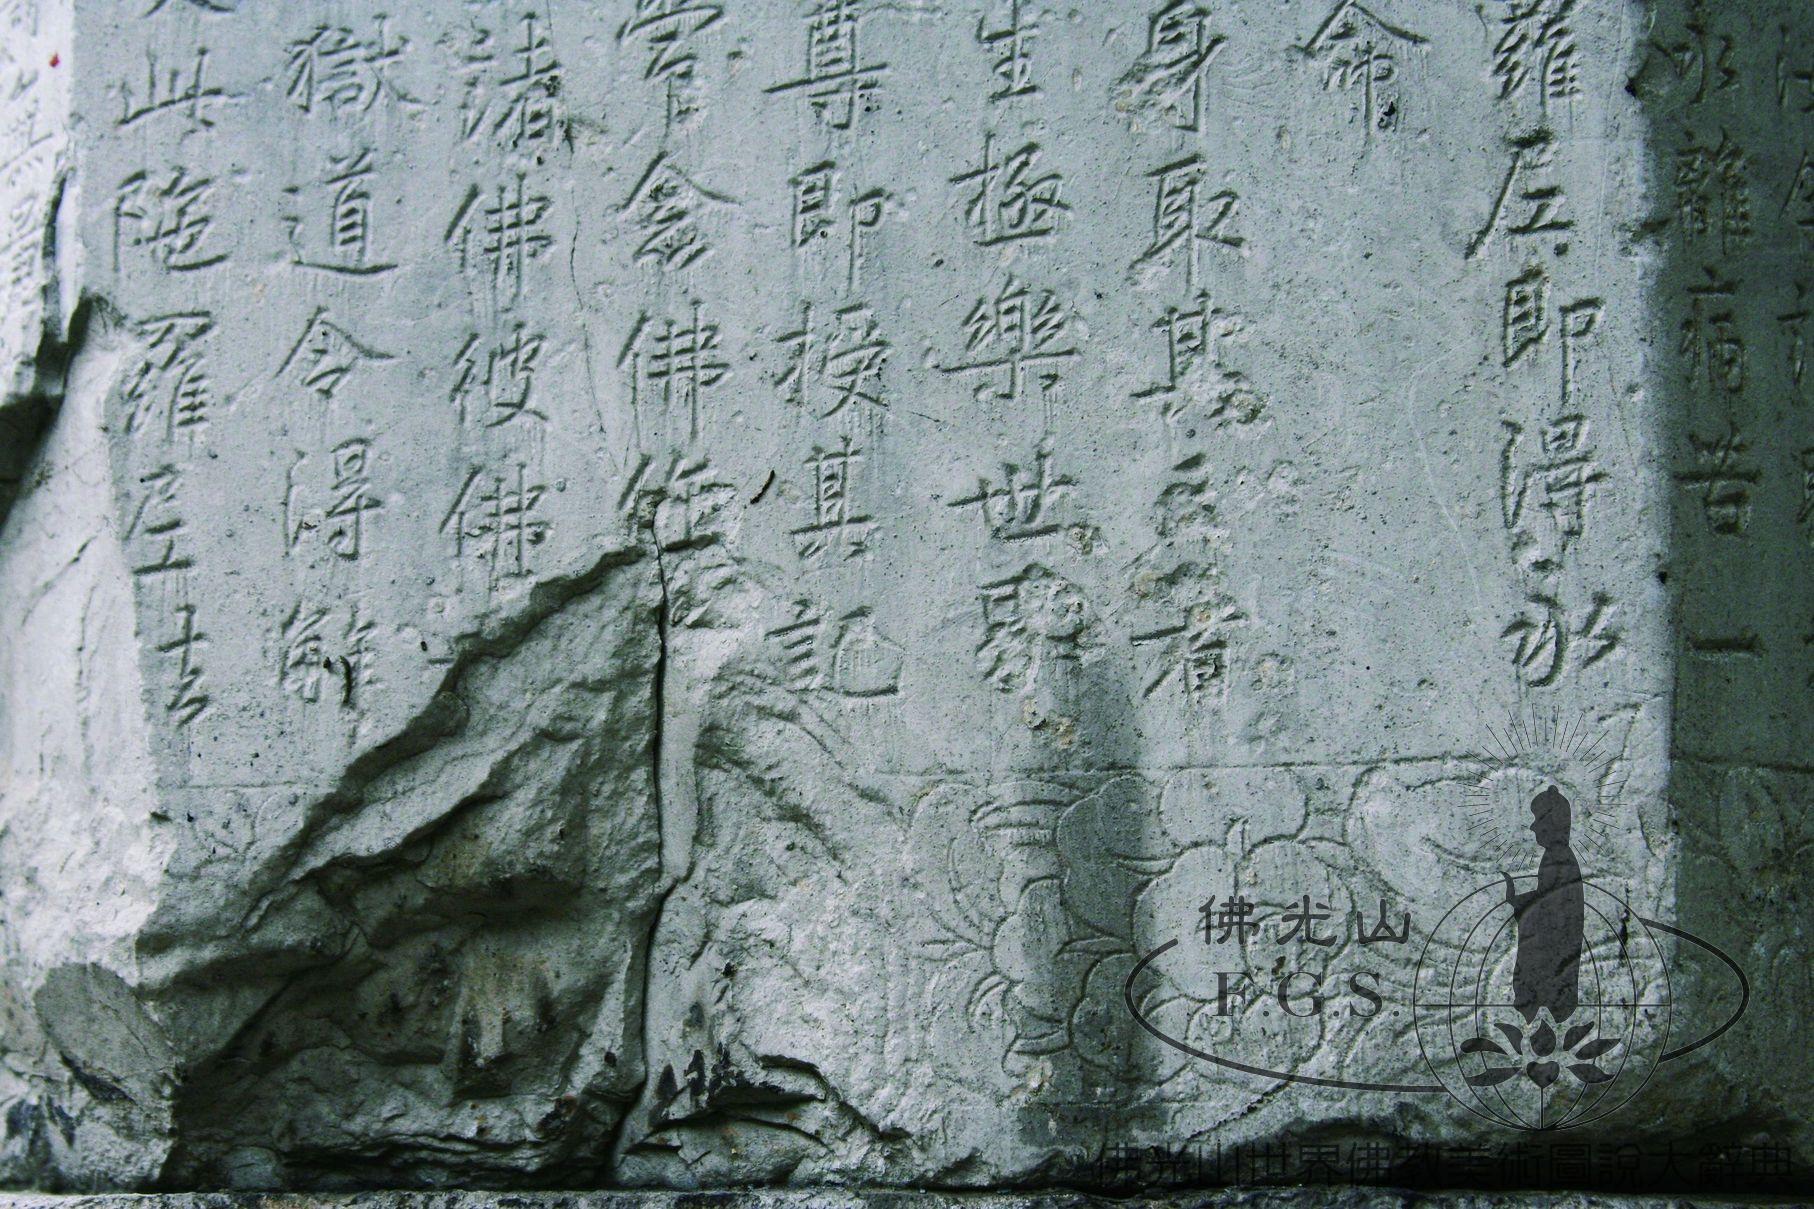 永離苦一
羅尼即得永
命
身取其者
生極樂世界
尊即授其記
常念佛修
諸佛彼佛
獄道令得解
此陀羅尼
佛光山
F.G.S.
佛光山世界佛教美術圖說大辭典